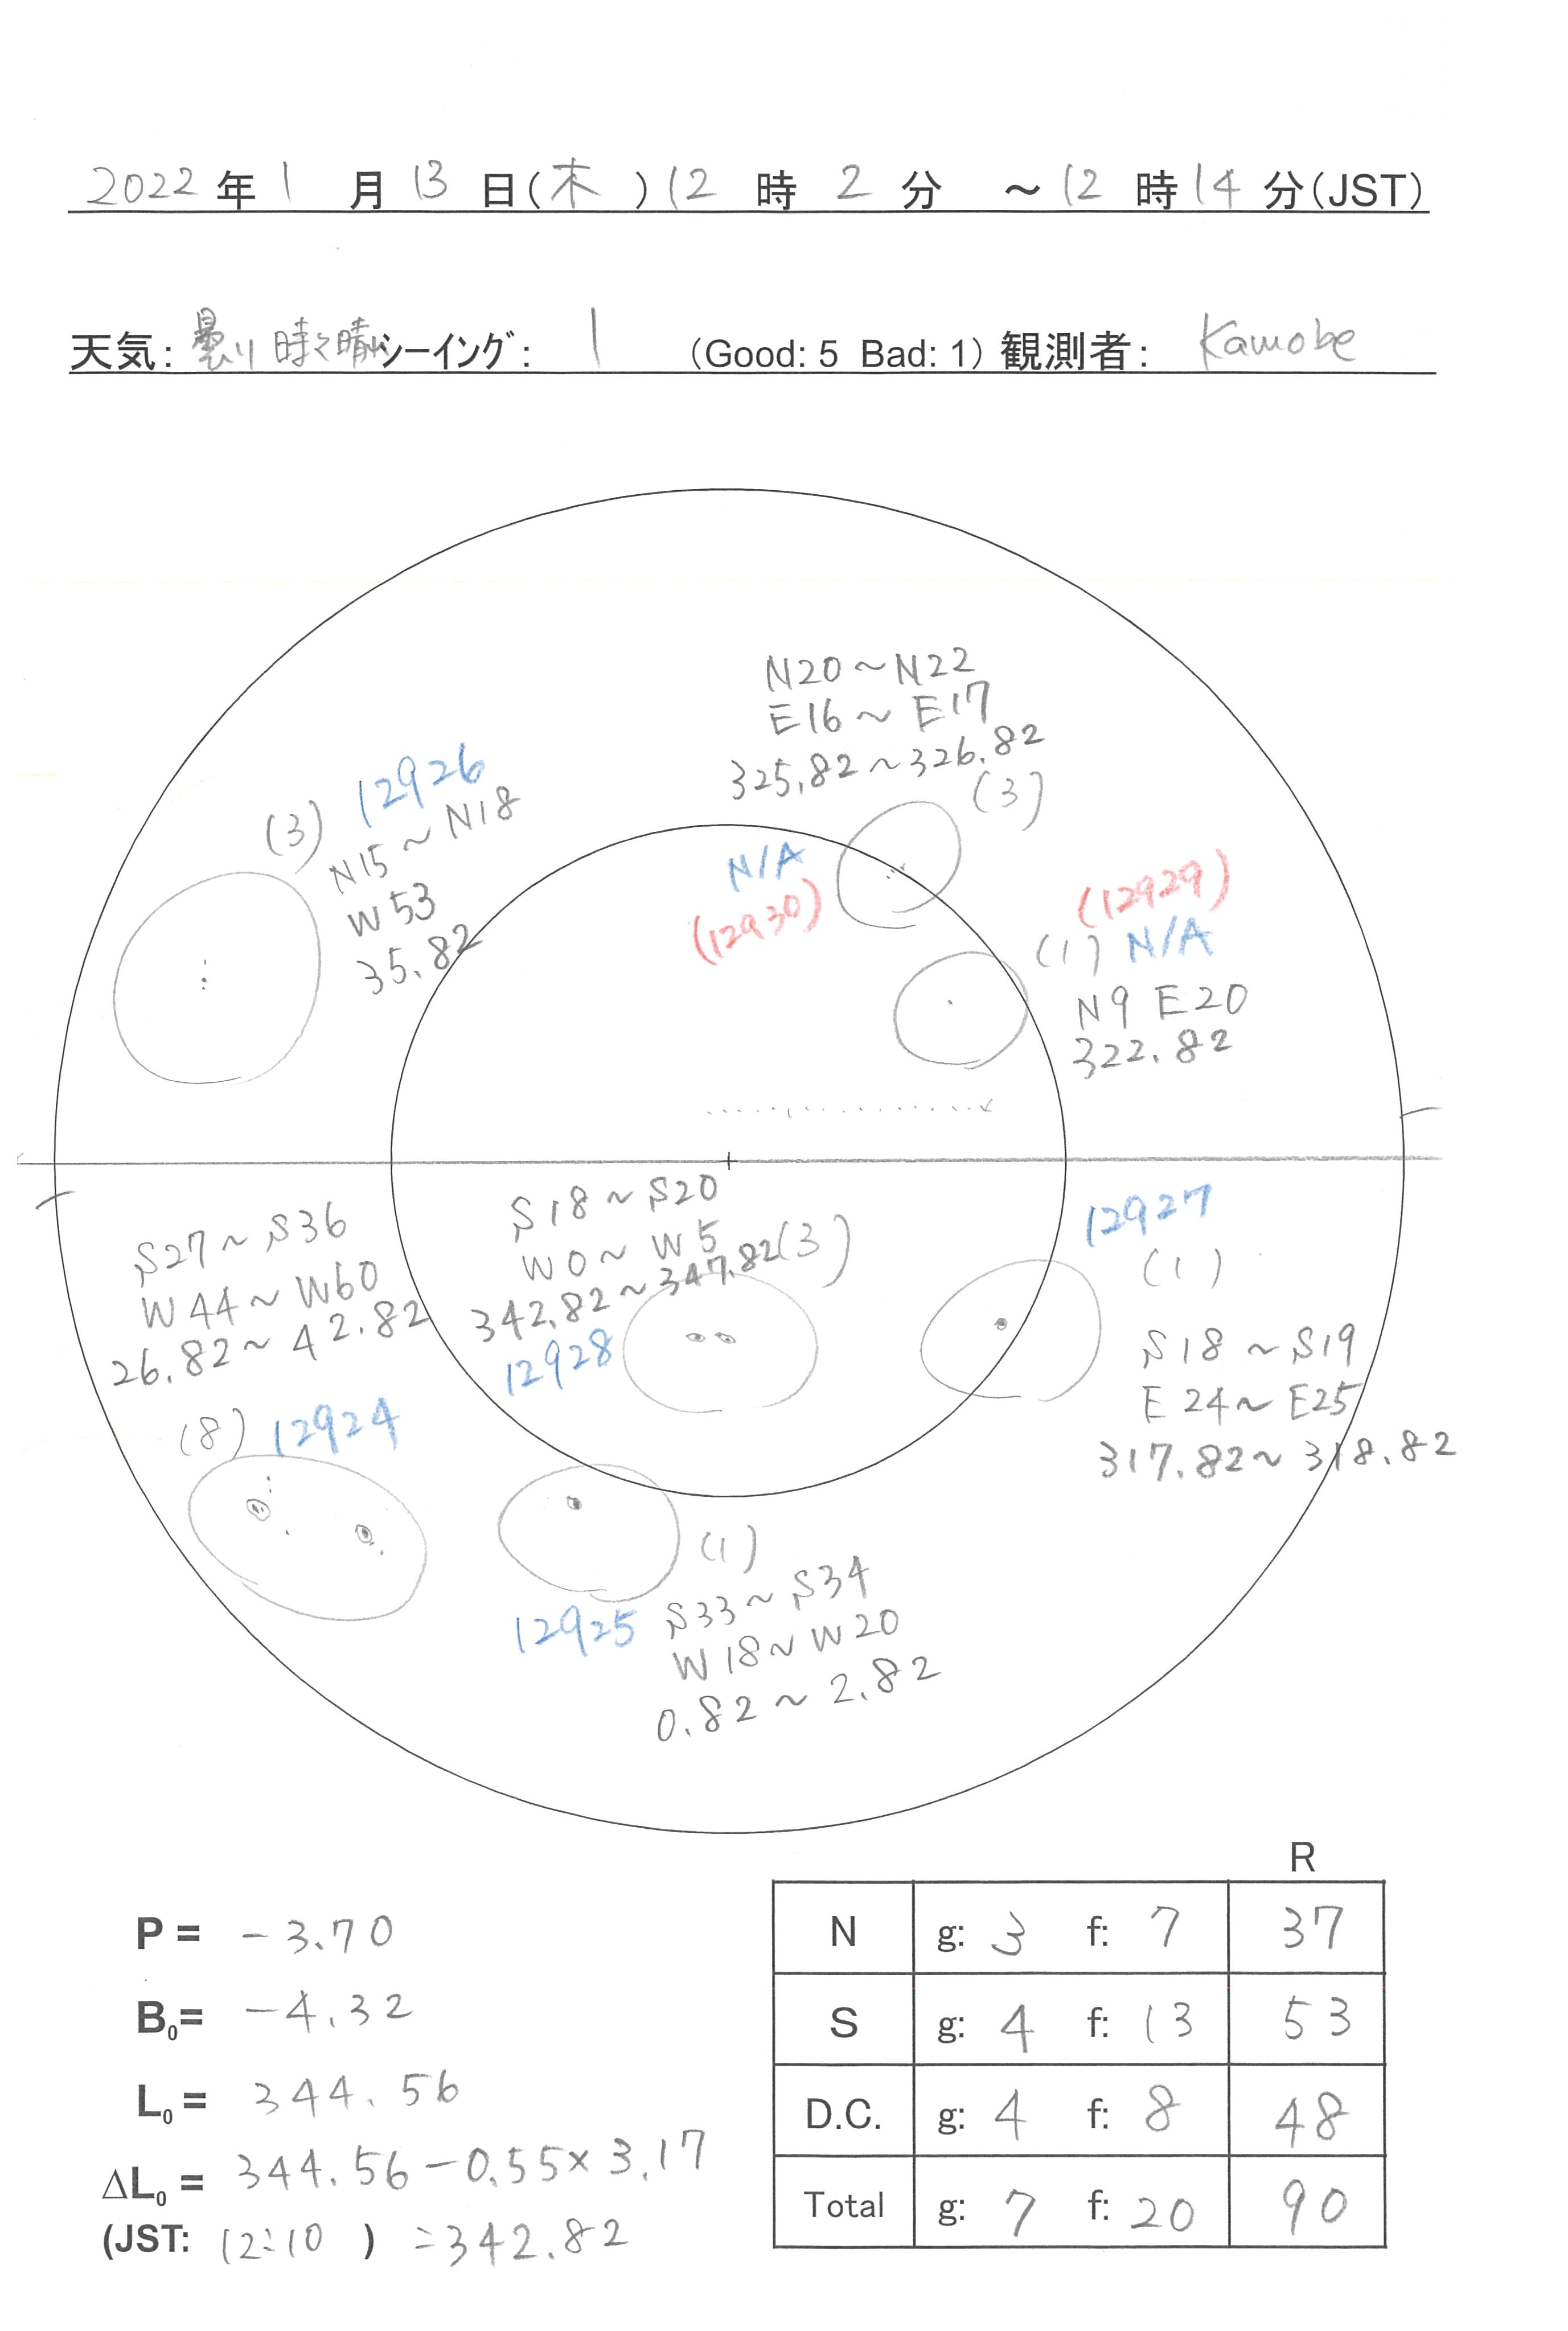 2022年1月13日(木)12時2分 ～12時14分(JST)
天気: 曇り時々晴れ シーイング: 1 (Good: 5 Bad: 1) 観測者: Kamobe
N20～N22
E16～E17
325.82～326.82
(3)
(3) 12926
N15～N18
W53
35.82
N/A
(12930)
(12929)
(1) N/A
N9 E20
322.82
S27～S36
W44～W60
26.82～42.82
(8) 12924
S18～S20
W0～W5
342.82～347.82(3)
12928
12927
(1)
S18～S19
E24～E25
317.82～318.82
(1)
12925 S33～S34
W18～W20
0.82～2.82
P= -3.70
B0= -4.32
L0= 344.56
ΔL0= 344.56-0.55×3.17
(JST: 12:10 ) =342.82
R
N g: 3 f: 7 37
S g: 4 f: 13 53
D.C. g: 4 f: 8 48
Total g: 7 f: 20 90